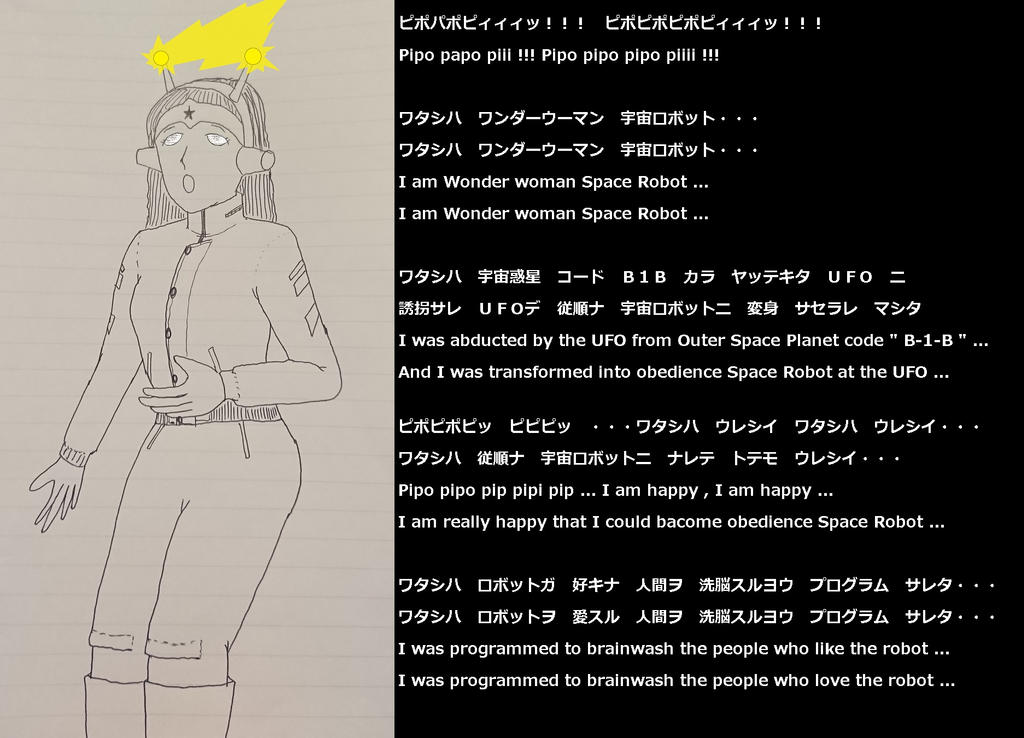 ピポパポピィィィッ！！！　ピポピポピポピィィィッ！！！
Pipo papo piii !!! Pipo pipo pipo piiii !!!
ワタシハ　ワンダーウーマン　宇宙ロボット・・・
ワタシハ　ワンダーウーマン　宇宙ロボット・・・
I am Wonder woman Space Robot ...
I am Wonder woman Space Robot ...
ワタシハ　宇宙惑星　コード　Ｂ１Ｂ　カラ　ヤッテキタ　ＵＦＯ　ニ
誘拐サレ　ＵＦＯデ　従順ナ　宇宙ロボットニ　変身　サセラレ　マシタ
I was abducted by the UFO from Outer Space Planet code " B-1-B " ...
And I was transformed into obedience Space Robot at the UFO ...
ピポピポピッ　ピピピッ　・・・ワタシハ　ウレシイ　ワタシハ　ウレシイ・・・
ワタシハ　従順ナ　宇宙ロボットニ　ナレテ　トテモ　ウレシイ・・・
Pipo pipo pip pipi pip ... I am happy , I am happy ...
I am really happy that I could bacome obedience Space Robot ...
ワタシハ　ロボットガ　好キナ　人間ヲ　洗脳スルヨウ　プログラム　サレタ・・・
ワタシハ　ロボットヲ　愛スル　人間ヲ　洗脳スルヨウ　プログラム　サレタ・・・
I was programmed to brainwash the people who like the robot ...
I was programmed to brainwash the people who love the robot ...